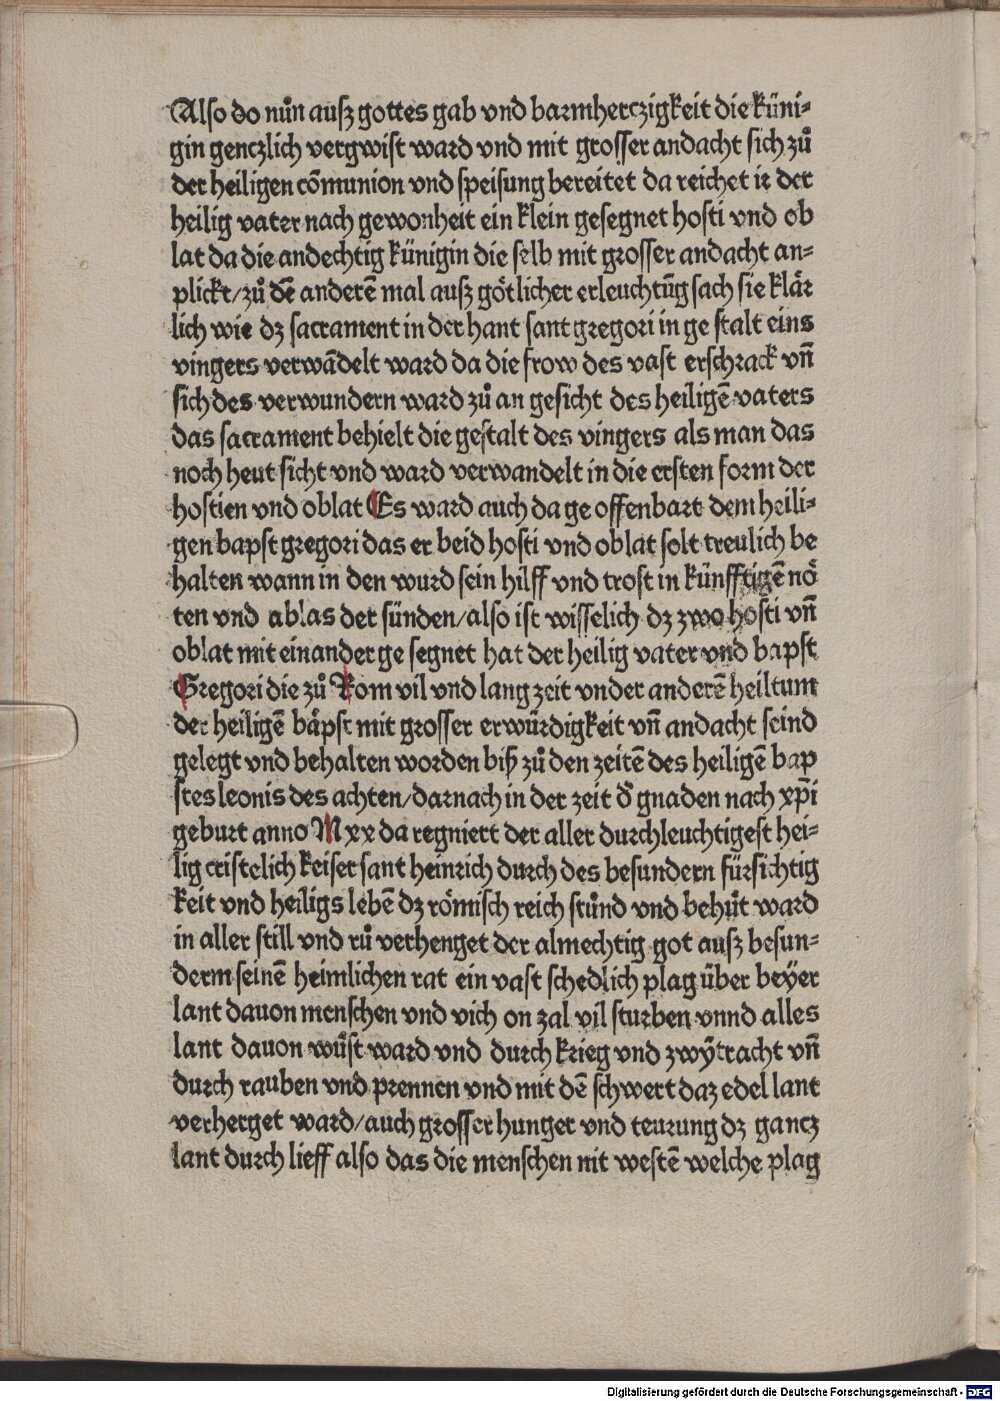 Also do nuͦn ausz gottes gab vnd barmherczigkeit die küni⸗
gin genczlich vergwist ward vnd mit grosser andacht sich zuͦ
der heiligen cōmunion vnd speisung bereitet da reichet ir der
heilig vater nach gewonheit ein klein gesegnet hosti vnd ob
lat da die andechtig künigin die selb mit grosser andacht an⸗
plickt/zuͦ dē anderē mal ausz goͤtlicher erleuchtūg sach sie klaͤr
lich wie dz sacrament in der hant sant gregori in ge stalt eins
vingers verwādelt ward da die frow des vast erschrack vn̄
sich des verwundern ward zuͦ an gesicht des heiligē vaters
das sacrament behielt die gestalt des vingers als man das
noch heut sicht vnd ward verwandelt in die ersten form der
hostien vnd oblat Es ward auch da ge offenbart dem heili⸗
gen bapst gregori das er beid hosti vnd oblat solt treulich be
halten wann in den wurd sein hilff vnd trost in künfftigē noͤ
ten vnd ablas der sünden/also ist wisselich dz zwo hosti vn̄
oblat mit einander ge segnet hat der heilig vater vnd bapst
Gregori die zuͦ Rom vil vnd lang zeit vnder anderē heiltum
der heiligē baͤpst mit grosser erwürdigkeit vn̄ andacht seind
gelegt vnd behalten worden biß zuͦ den zeitē des heiligē bap
stes leonis des achten/darnach in der zeit d̄ gnaden nach xp̄i
geburt anno Mxx da regniert der aller durchleuchtigest hei⸗
lig cristelich keiser sant heinrich durch des besundern fürsichtig
keit vnd heiligs lebē dz roͤmisch reich stuͦnd vnd behuͤt ward
in aller still vnd ruͦ verhenget der almechtig got ausz besun⸗
derm seinē heimlichen rat ein vast schedlich plag über beÿer
lant dauon menschen vnd vich on zal vil sturben vnnd alles
lant dauon wuͤst ward vnd durch krieg vnd zwÿtracht vn̄
durch rauben vnd prennen vnd mit dē schwert daz edel lant
verherget ward/auch grosser hunger vnd teurung dz gancz
lant durch lieff also das die menschen nit westē welche plag
Digitalisierung gefördert durch die Deutsche Forschungsgemeinschaft - DFG